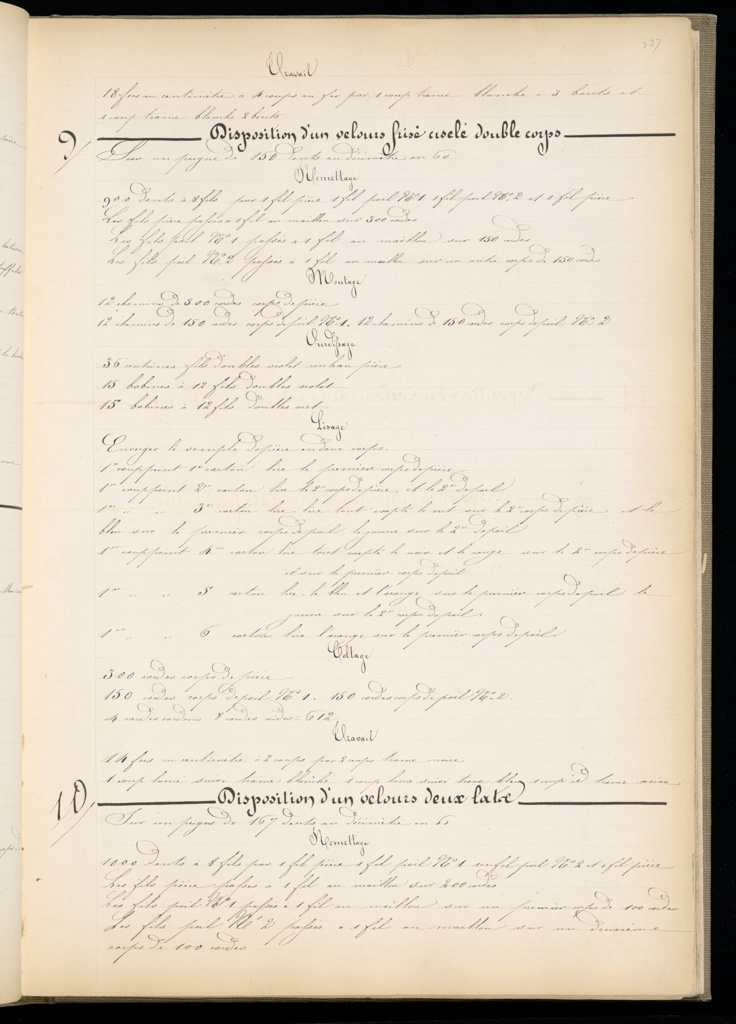 237
Travail
18 fers au centimètre à 4 coups au fer par 1 coup trame blanche à 3 bouts et
1 coup trame blanche 2 bouts
9/ Disposition d'un velours frisé ciselé double corps
Sur un peigne de 150 dents au décimètre en 60
Remettage
900 dents à 8 fils par 1 fil pièce 1 fil poil N° 1 1 fil poil N° 2 et 1 fil pièce
Les fils pièce passés à 1 fil au maillon sur 300 cordes
Les fils poil N° 1 passés à 1 fil au maillon sur 150 cordes
Les fils poil N° 2 passés à 1 fil au maillon sur un autre corps de 150 cordes
Montage
12 chemins de 300 cordes corps de pièce
12 chemins de 150 cordes corps de poil N° 1. 12 chemins de 150 cordes corps de poil N° 2
Ourdissage
36 fils doubles violet pièce
15 bobines à 12 fils doubles violet
15 bobines à 12 fils doubles vert
Lisage
le semple de pièce en deux corps.
1er coup point 1er carton lire le premier corps de pièce
1er coup point 2e carton lire le 2e corps de pièce et le 2e de poil
1er " " 3e carton lire tout excepté le vert sur le 2e corps de pièce et le
bleu sur le premier corps de poil le jaune sur le 2e de poil
1er coup point 4e carton lire tout excepté le noir et le rouge sur le 2e corps de pièce
et sur le premier corps de poil
1er " " 5 carton lire le bleu et l'orange sur le premier corps de poil le
jaune sur le 2e corps de poil.
1er " " 6 carton lire l'orange sur le premier corps de poil
Colletage
300 cordes corps de pièce
150 cordes corps de poil N° 1. 150 cordes corps de poil N° 2.
4 cordes cordons 8 cordes vides = 612
Travail
14 fers au centimètre à 2 coups par 2 coups trame noire
1 coup lancé suivi trame blanche 1 coup lancé suivi trame bleu trame noire
10/ Disposition d'un velours deux lats
Sur un peigne de 167 dents au décimètre en 60
Remettage
1000 dents à 8 fils par 1 fil pièce 1 fil poil N° 1 un fil poil N° 2 et 1 fil pièce
Les fils pièce passés à 1 fil au maillon sur 200 cordes
Les fils poil N° 1 passés à 1 fil au maillon sur un premier corps de 100 cordes
Les fils poil N° 2 passés à 1 fil au maillon sur un deuxième
corps de 100 cordes